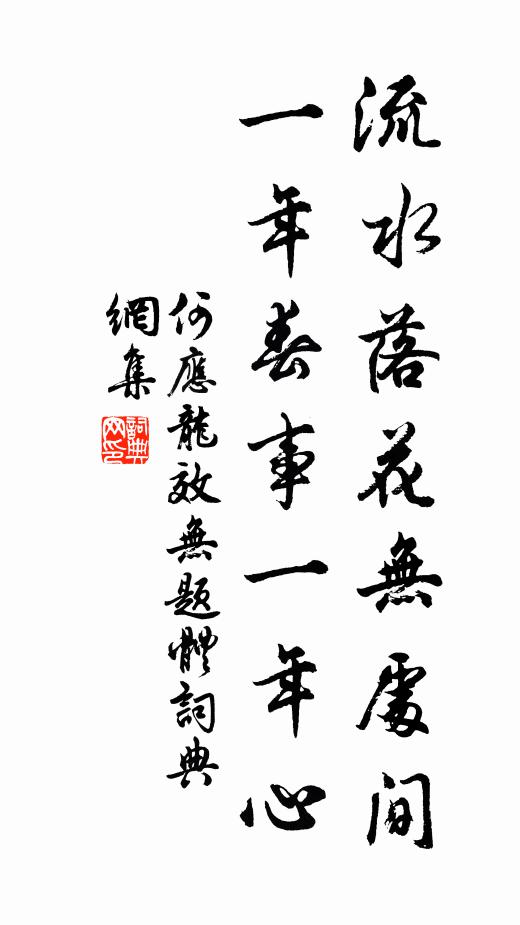 流水落花無處問
一年春事一年心
何應龍效無題體詞典
網集
詞典
网印